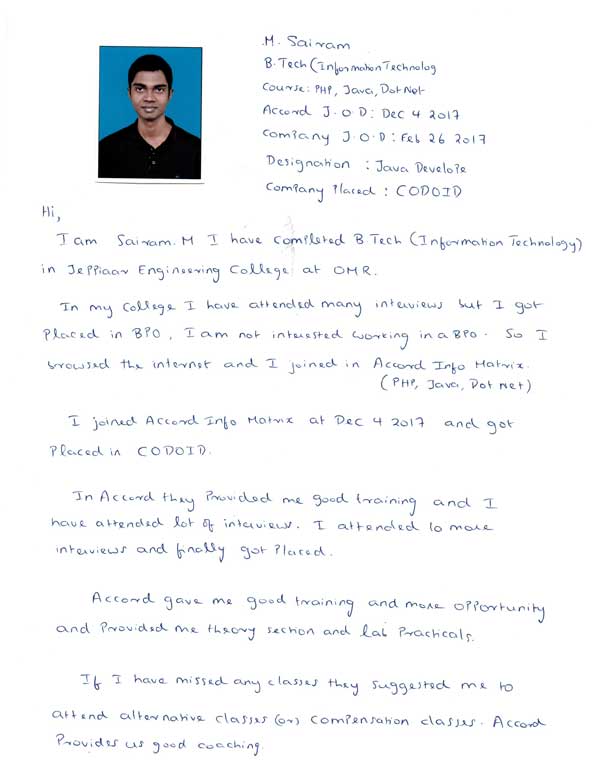 M. Sairam
B.Tech (Information Technolog
Course: PHP, Java, Dot Net
Accord J.O.D: Dec 4 2017
Company J.O.D: Feb 26 2017
Designation : Java Develope
Company Placed : CODOID
Hi,
I am Sairam.M I have completed B.Tech (Information Technology)
in Jeppiaar Engineering College at OMR.
In my college I have attended many interviews but I got
Placed in BPO, I am not interested working in a BPO. So I
browsed the internet and I joined in Accord Info Matrix.
(PHP, Java, Dot Net)
I joined Accord Info Matrix at Dec 4 2017 and got
Placed in CODOID.
In Accord they Provided me good training and I
have attended lot of interviews. I attended 10 more
interviews and finally got Placed.
Accord gave me good training and more opportunity
and Provided me theory section and lab Practicals.
If I have missed any classes they suggested me to
attend alternative classes (or) compensation classes. Accord
Provides us good coaching.